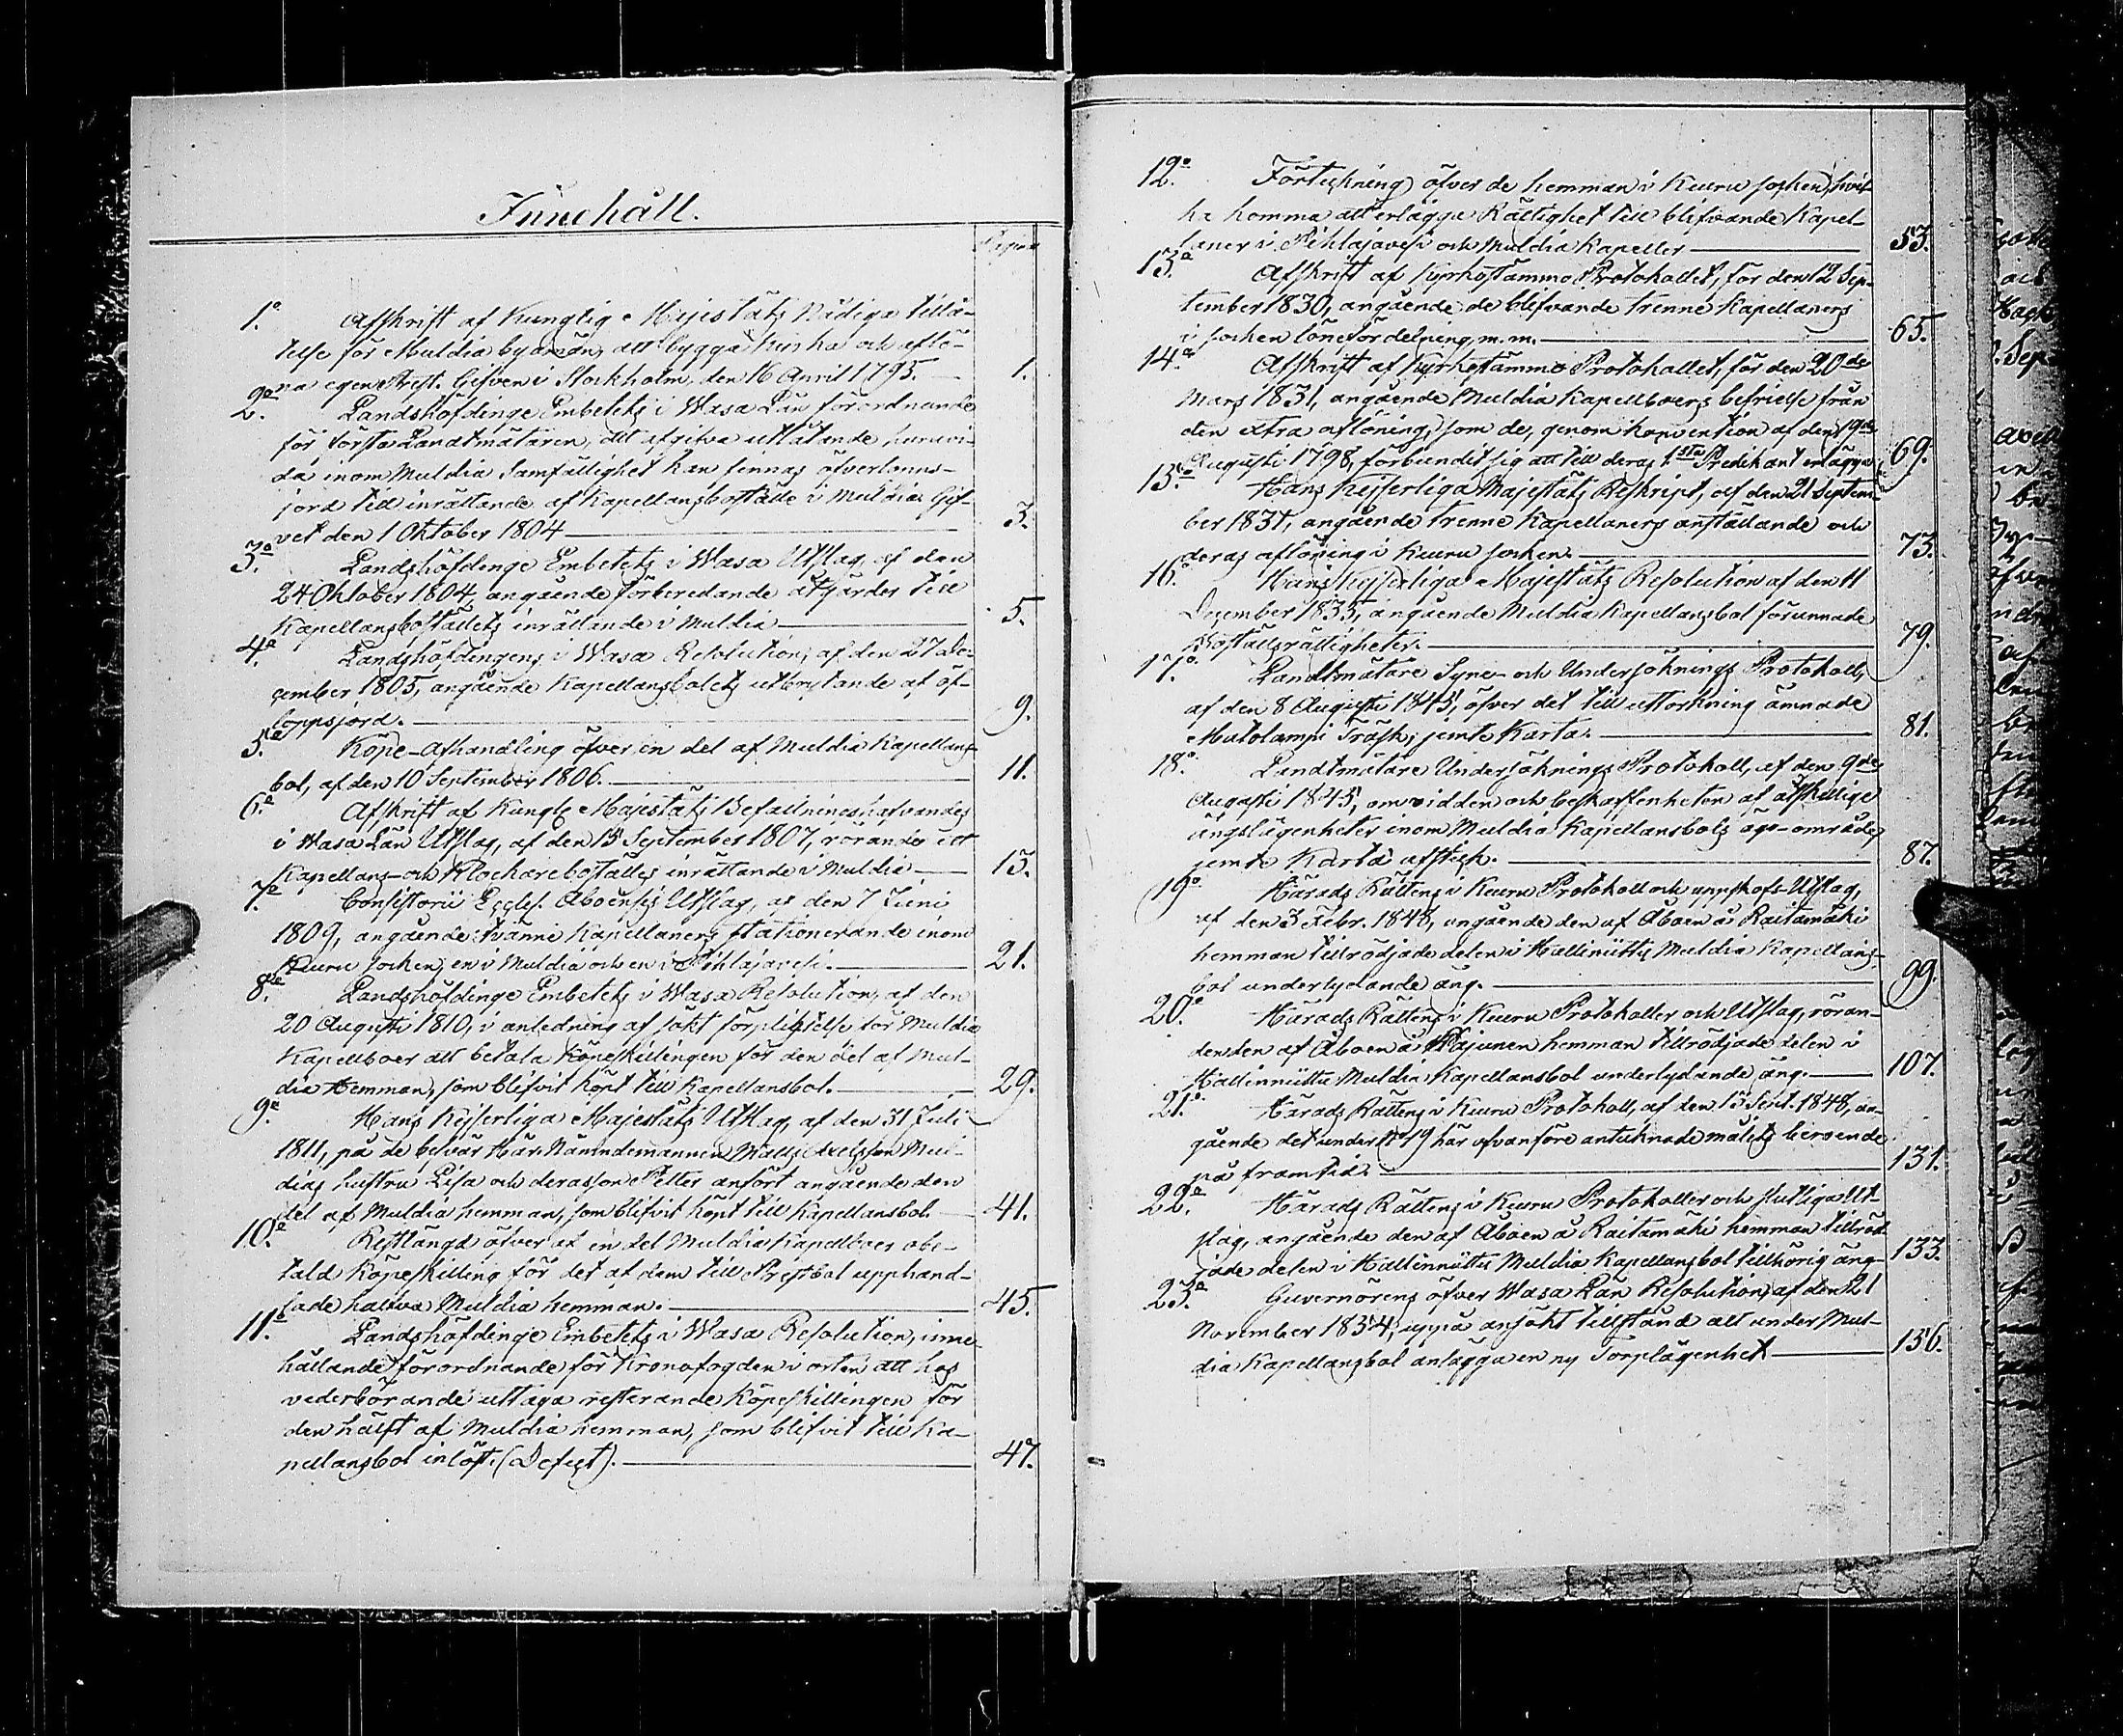 Innehåll.
Pagina
1.o Afskrift af Kunglig Majestäts Nådiga tillå- 
telse för Muldia byamän, att bygga kyrka och aflö-
na egen Prest. Gifven i Stockholm den 16 April 1795. 1.
2.o Landshöfdinge Embetets i Wasa Län förordnande
för Förste Landtmätaren, att afgifva utlåtande huruvi-
da inom Muldia Samfällighet kan finnas öfverlopps-
jord till inrättande af Kapellansboställe i Muldia. Gif-
vet den 1 Oktober 1804 3.
3.o Landshöfdinge Embetets i Wasa Utslag, af den
24 Oktober 1804, angående förberedande åtgärder till
Kapellansboställets inrättande i Muldia 5.
4.o Landshöfdingens i Wasa Resolution, af den 27 De-
cember 1805, angående Kapellansbolets utbrytande af öf-
loppsjord. 9.
5.o Köpe-Afhandling öfver en del af Muldia Kapellans-
bol, af den 10 September 1806. 11.
6.o Afskrift af Kungl. Majestäts Befallningshafvandes
i Wasa Län Utslag, af den 15 September 1807, rörande ett
Kapellans- och Klockareboställes inrättande i Muldia 15.
7.o Consistorii Eccles. Aboensis Utslag, af den 7 Juni
1809, angående tvänne Kapellaners stationerande inom
Kuru Socken, en i Muldia och en i Pihlajavesi. 21.
8.o Landshöfdinge Embetets i Wasa Resolution, af den
20 Augusti 1810, i anledning af sökt förpligtelse för Muldia
Kapellboer att betala Köpeskillingen för den del af Mul-
dia Hemman, som blifvit köpt till Kapellansbol. 29.
9.o Hans Kejserliga Majestäts Utslag, af den 31 Juli
1811, på de besvär Här. Nämndemannen Matts Axelsson Mul-
dias hustru Lisa och deras son Petter anfört angående den
del af Muldia hemman, som blifvit köpt till Kapellansbol. 41.
10.o Restlängd öfver af en del Muldia Kapellboer obe-
tald Köpeskilling för det af dem till Prestbol upphand-
lade halfva Muldia hemman. 45.
11.o Landshöfdinge Embetets i Wasa Resolution, inne-
hållande förordnande för Kronofogden i orten att hos
vederbörande uttaga resterande Köpeskillingen för
den hälft af Muldia hemman, som blifvit till Ka-
pellansbol inlöst. (Defect). 47.
12.o Förteckning öfver de hemman i Kuru socken, hvil-
ka komma att erlägga Rättighet till blifvande Kapel-
laner i Pihlajavesi och Muldia Kapeller 53.
13.o Afskrift af Kyrkostämmo Protokollet, för den 12 Sep-
tember 1830, angående de blifvande trenne Kapellaners
i socken lönefördelning, m.m. 65.
14.o Afskrift af Kyrkostämmo Protokollet, för den 20de
Mars 1831, angående Muldia Kapellboers befrielse från
den extra aflöning, som de, genom konvention af den 19de
Augusti 1798, förbundit sig att till deras 1.sta Predikant erlägga. 69.
15.o Hans Kejserliga Majestäts Reskript, af den 21 Septem-
ber 1831, angående trenne Kapellaners anställande och
deras aflöning i Kuru socken. 73.
16.o Hans Kejserliga Majestäts Resolution af den 11
December 1835, angående Muldia Kapellansbol förunnade
Boställsrättigheter. 79.
17.o Landtmätare Syne- och Undersöknings Protokoll,
af den 8 Augusti 1845, öfver det till uttorkning ämnade
Mutolampi Träsk, jemte Karta. 81.
18.o Landtmätare Undersöknings Protokoll, af den 9de
Augusti 1845, om vidden och beskaffenheten af åtskillige
ängslägenheter inom Muldia Kapellansbols ägo-område,
jemte Karta afskr. 87.
19.o Härads Rättens i Kuru Protokoll och uppskofs-Utslag,
af den 3 Febr. 1848, angående den af Åboen å Raitamäki
hemman tillrödjade delen i Hallinniittu Muldia Kapellans-
bol underlydande äng. 99.
20.o Härads Rättens i Kuru Protokoller och Utslag, röran-
de den af Åboen å Pajunen hemman tillrödjade delen i
Hallinniittu Muldia Kapellansbol underlydande äng. 107.
21.o Härads Rättens i Kuru Protokoll, af den 15 Sept. 1848, an-
gående det under N:o 19 här ofvanföre antecknade målets beroende
på framtid. 131.
22.o Härads Rättens i Kuru Protokoller och slutliga Ut-
slag, angående den af Åboen å Raitamäki hemman tillröd-
jade delen i Hallinniittu Muldia Kapellansbol tillhörig äng. 133.
23.o Guvernörens öfver Wasa Län Resolution, af den 21
November 1854, uppå ansökt tillstånd att under Mul-
dia Kapellansbol anlägga en ny Torplägenhet 156.